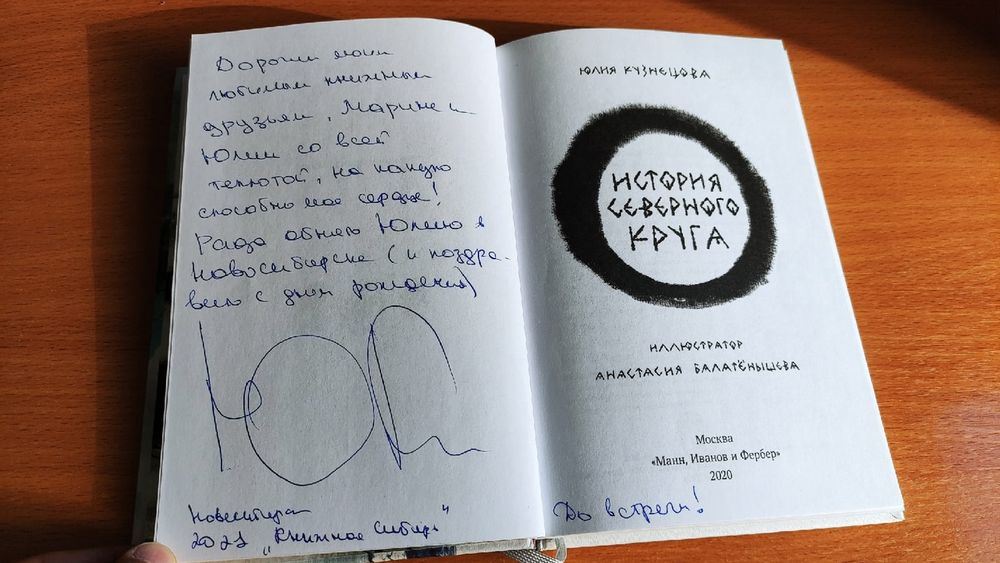 Дорогим моим
любимым книжным
друзьям, Марине и
Юлии со всей
теплотой, на какую
способно мое сердце!
Рада обнять Юлию в
Новосибирске (и поздра-
вить с днем рождения)
Новосибирск
2021 "Книжная Сибирь"
ЮЛИЯ КУЗНЕЦОВА
ИСТОРИЯ
СЕВЕРНОГО
КРУГА
ИЛЛЮСТРАТОР
АНАСТАСИЯ БАЛАТЁНЫШЕВА
Москва
«Манн, Иванов и Фербер»
2020
До встречи!